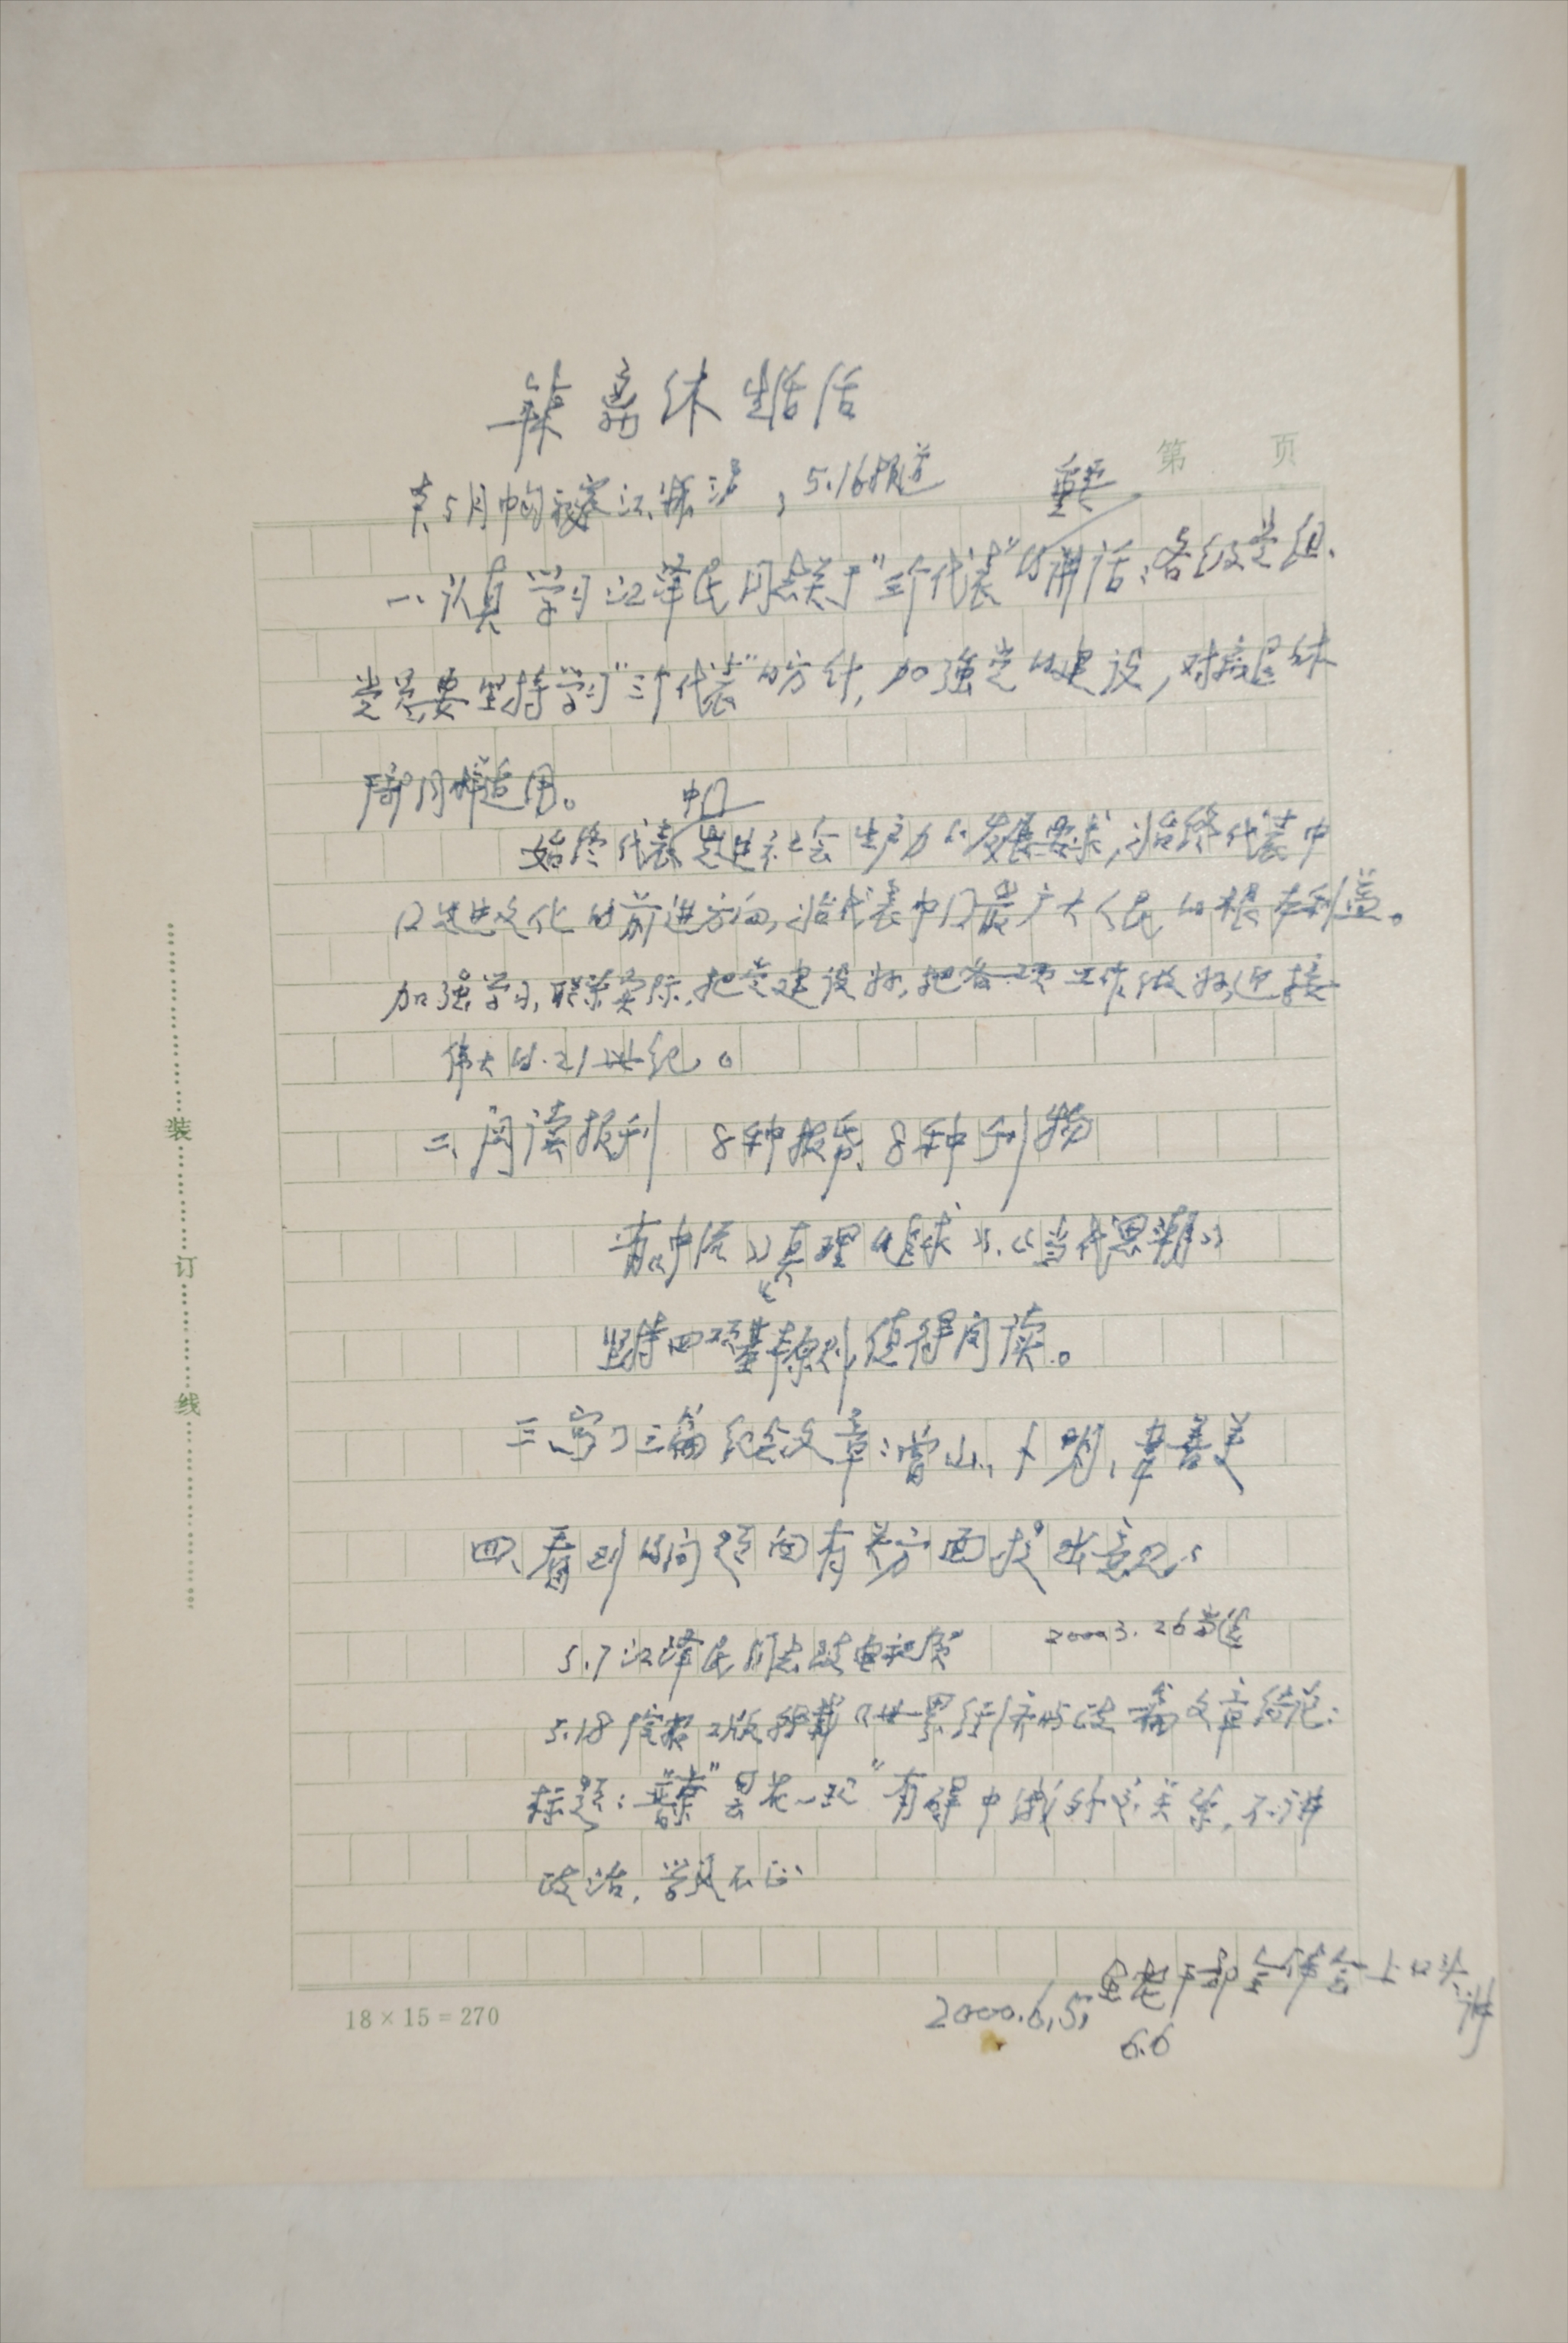 离休生活
第 页
5.16报道
重要
一、认真学习江泽民同志关于"三个代表"的讲话:各级党组、
党员要坚持学习"三个代表"的方针,加强党的建设,对离退休
干部同样适用。
中国
始终代表先进社会生产力的发展要求,始终代表中
国先进文化的前进方向,始代表中国最广大人民的根本利益。
加强学习,联系实际,把党建设好,把各项工作做好,迎接
伟大的21世纪。
二、阅读报刊 8种报纸、8种刊物
《中流》《真理的追求》、《当代思潮》
坚持四项基本原则,值得阅读。
三、写了三篇纪念文章:
四、看到的问题向有关方面提出意见:
5.7江泽民同志致电祝贺 2000 3.26当选
5.18 2版转载《世界经济与政 一篇文章结论:
标题:普京"昙花一现"有碍中俄外交关系,不讲
政治,学风不正
2000.6.5, 老干部全体会上口头
讲
6.6
18×15=270
装
订
线